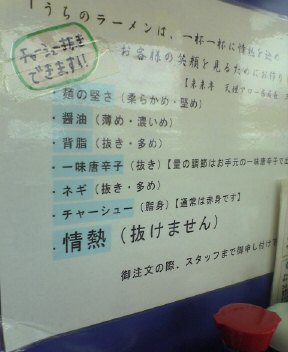 「うちのラーメンは、一杯一杯に情熱を込め
お客様の笑顔を見るためにお作り
チャーシュー抜き
できます!!
【来来亭 天理
・麺の堅さ(柔らかめ・堅め)
・醤油(薄め・濃いめ)
・背脂(抜き・多め)
・一味唐辛子(抜き)【量の調節はお手元の一味唐辛子で
・ネギ(抜き・多め)
・チャーシュー(脂身)【通常は赤身です】
・情熱(抜けません)
御注文の際、スタッフまで御申し付け